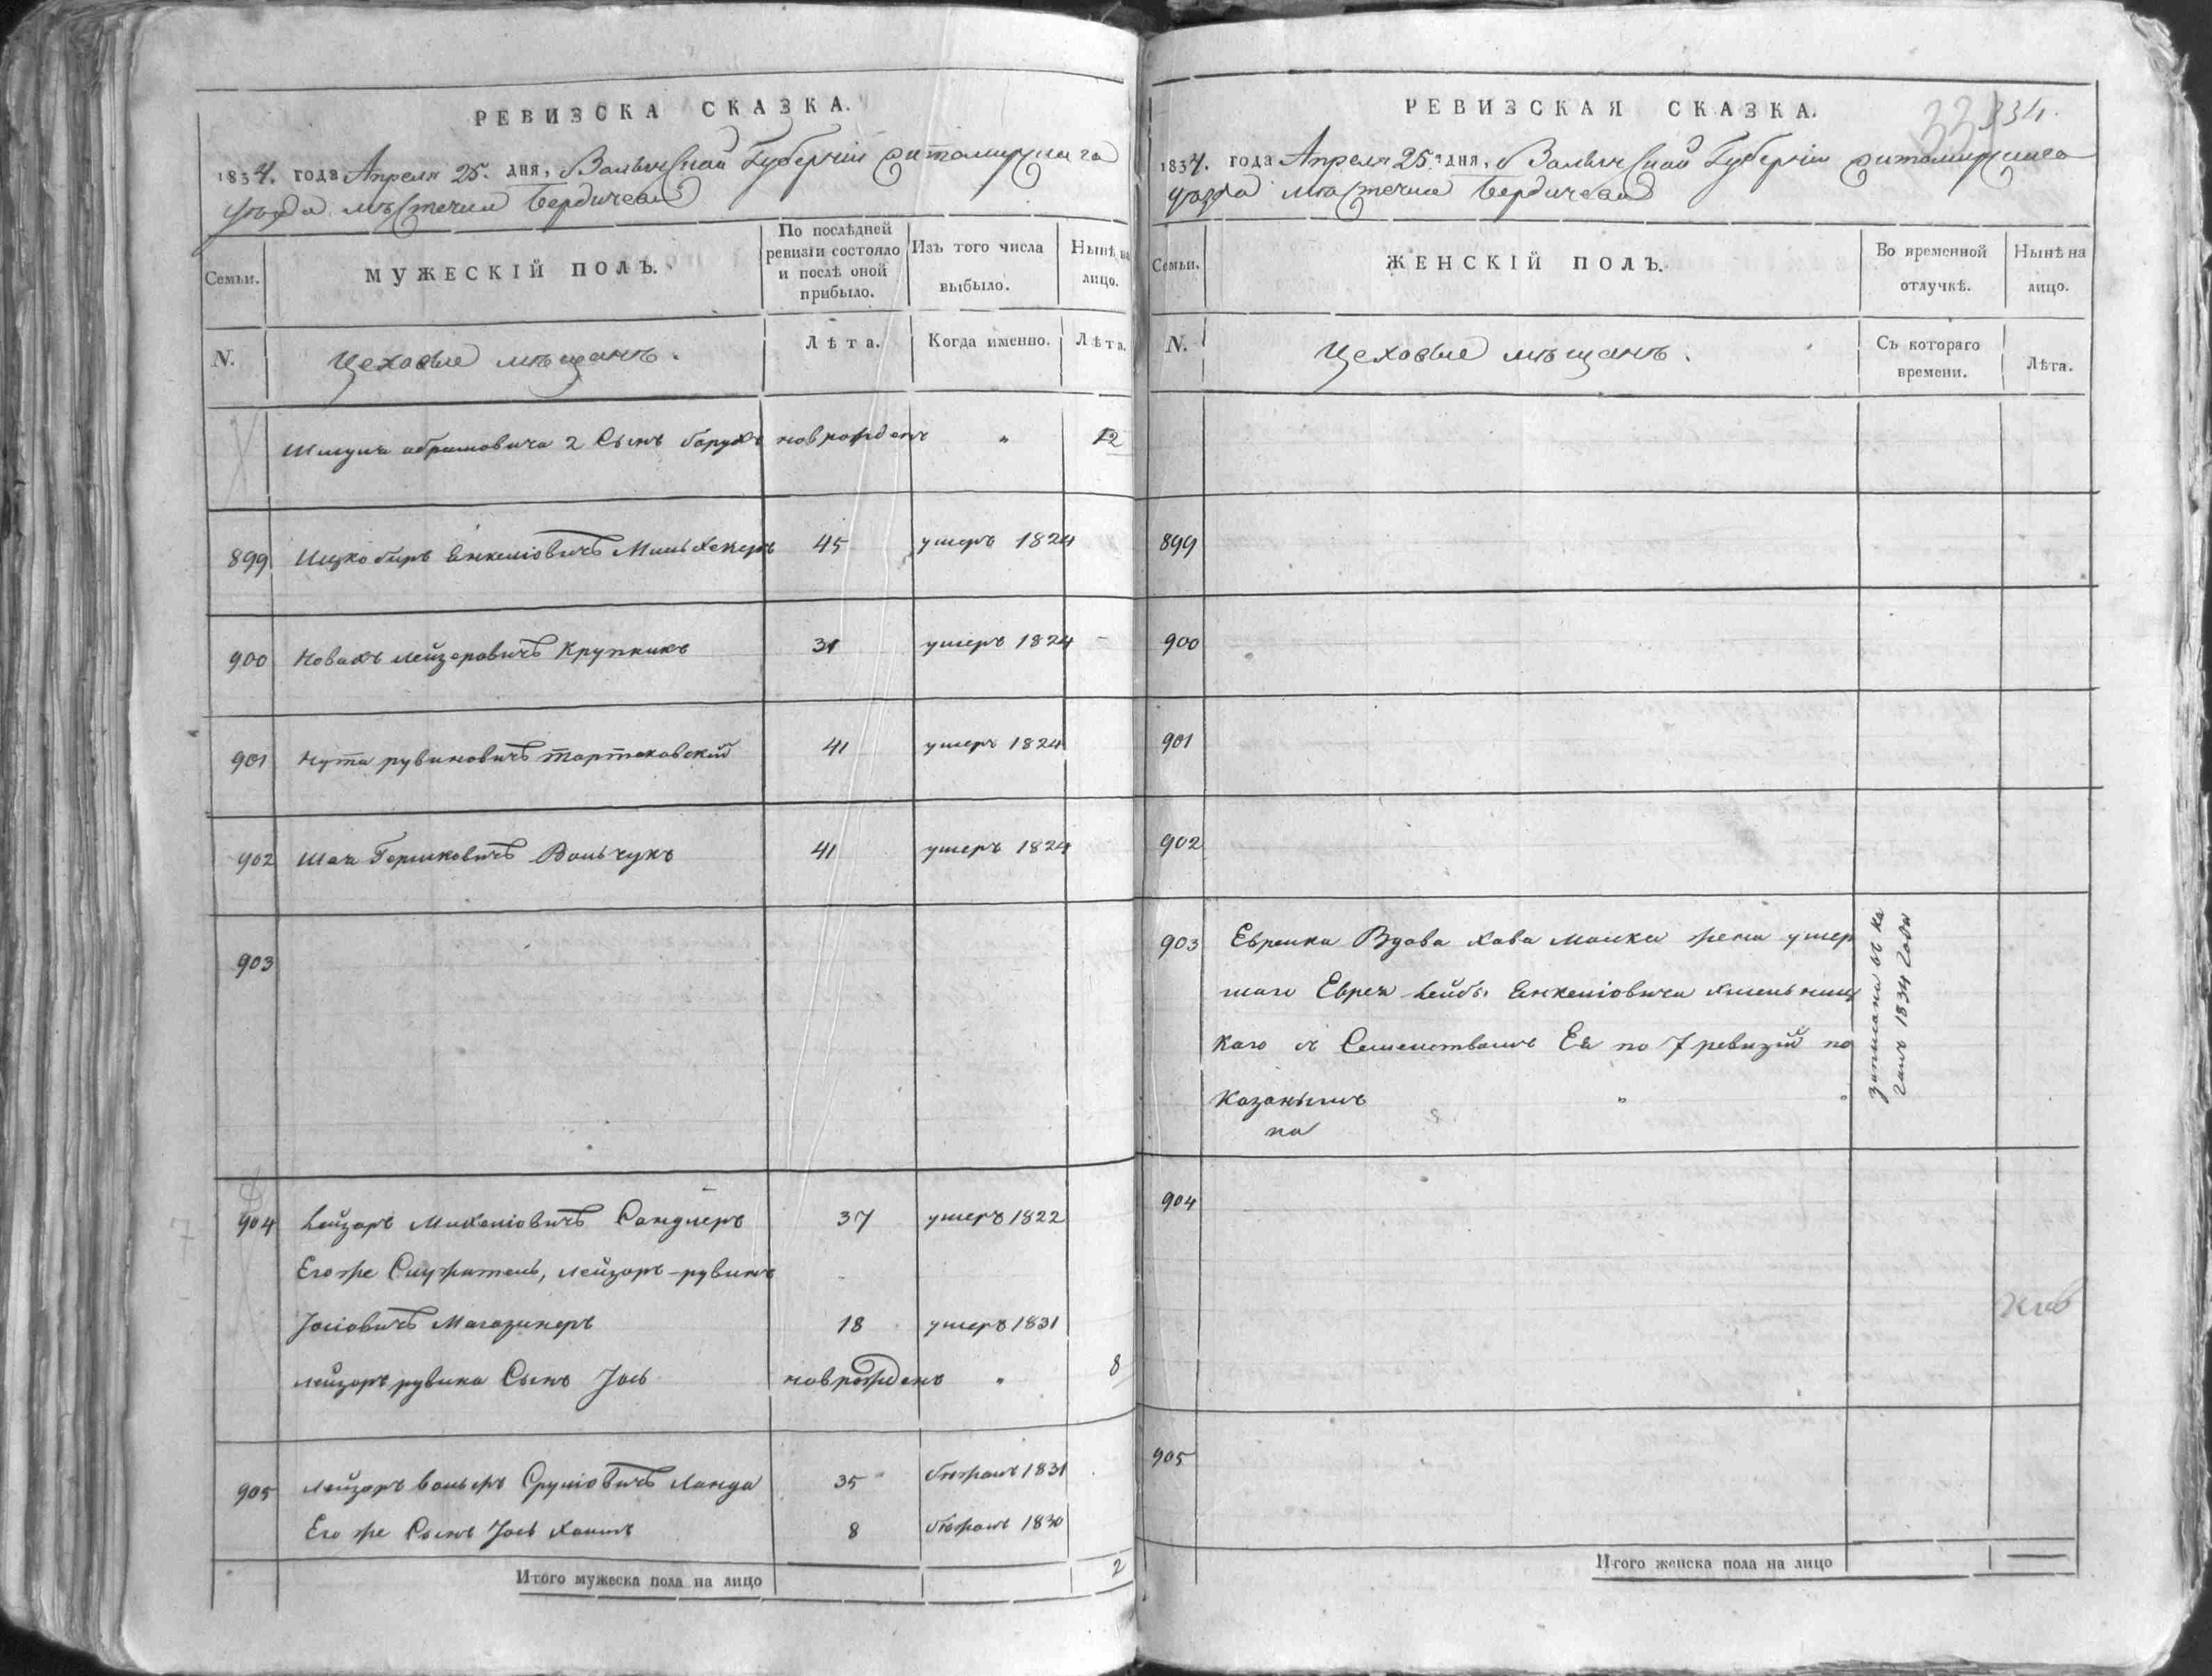 РЕВИЗСКА СКАЗКА.
1834. года Апреля 25. дня, Волынской Губерніи Житомирскаго
уѣзда мѣстечка Бердичева
Семьи.
МУЖЕСКІЙ ПОЛЪ.
По послѣдней ревизіи состояло и послѣ оной прибыло.
Изъ того числа выбыло.
Нынѣ на лицо.
N.
Цеховые мѣщанъ.
Лѣта.
Когда именно.
Лѣта.
Шмуля абрамовича 2 Сынъ барухъ новрожденъ " 12
899 Ицко биръ Янкеліовичъ 45 умеръ 1824
900 Новахъ лейзоровичъ Крупникъ 31 умеръ 1824 -
901 Нута рувиновичъ тартаковскій 41 умеръ 1824
902 Шая Гершковичъ Вольчукъ 41 умеръ 1824
903
904 Лейзоръ Михеліовичъ Сандлеръ 37 умеръ 1822
Егоже Служитель, лейзоръ-рувинъ
Іосіовичъ Магазинеръ 18 умеръ 1831
лейзоръ рувина Сынъ Іось новрожденъ " 8
905 Лейзоръ вольфъ Сруліовичъ Ланда 35 бѣжалъ 1831
Его же Сынъ Іось Хаимъ 8 бѣжалъ 1830
Итого мужеска пола на лицо 2
РЕВИЗСКАЯ СКАЗКА.
334.
1834. года Апреля 25. дня, Волынской Губерніи Житомирскаго
уѣзда мѣстечка Бердичева
Семьи.
ЖЕНСКІЙ ПОЛЪ.
Во временной отлучкѣ.
Нынѣ на лицо.
N.
Цеховые мѣщанъ.
Съ котораго времени.
Лѣта.
899
900
901
902
903 Еврейка Вдова Хава Малка жена умер
шаго Еврея Лейбы Янкеліовича хмельниц
каго с Семействомъ Ея по 7 ревизіи по
Казанымъ " "
на
записана въ ка
галъ 1834 года
904
905
Итого женска пола на лицо —